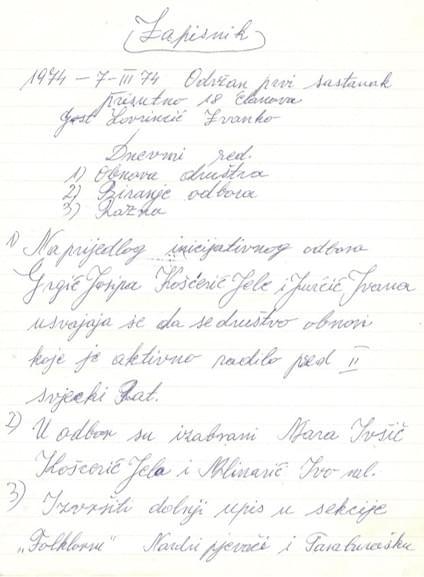 Zapisnik
1974 - 7-III 74 Održan prvi sastanak
Prisutno 18 članova
gost Lovrinčić Zvanko
Dnevni red.
1) Obnova društva
2) Biranje odbora
3) Razno
1) Na prijedlog inicijativnog odbora
Grgić Josipa Košćerić Jele i Jurčić Ivana
usvajaja se da se društvo obnovi
koje je aktivno radilo pred II
svjecki Rat.
2) U odbor su izabrani Mara Ivšić
Košcerić Jela i Mlinarić Ivo ml.
3) Izvršiti dolnji upis u sekcije
„Folklornu" Narodni pjevači i Tamburašku